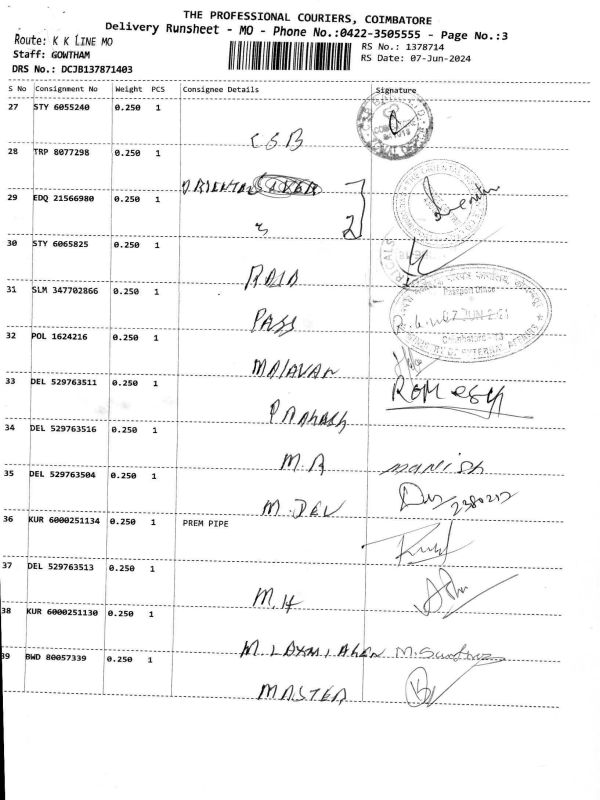 THE PROFESSIONAL COURIERS, COIMBATORE
Delivery Runsheet - MO - Phone No.:0422-3505555 - Page No.:3
Route: K K LINE MO
RS No.: 1378714
Staff: GOWTHAM
RS Date: 07-Jun-2024
DRS No.: DCJB137871403
S No Consignment No Weight PCS Consignee Details Signature
27 STY 6055240 0.250 1
CSB
28 TRP 8077298 0.250 1
ORIENTAL
29 EDQ 21566980 0.250 1
2
30 STY 6065825 0.250 1
RAJA
31 SLM 347702866 0.250 1
Passport Office
07 JUN 2
PASS
32 POL 1624216 0.250 1
MALAVAN
33 DEL 529763511 0.250 1
PRAKASH
34 DEL 529763516 0.250 1
M.R MANISH
35 DEL 529763504 0.250 1
M.DEV
36 KUR 6000251134 0.250 1 PREM PIPE
37 DEL 529763513 0.250 1
M.H
38 KUR 6000251130 0.250 1
M.LAXMI
39 BWD 80057339 0.250 1
MASTER